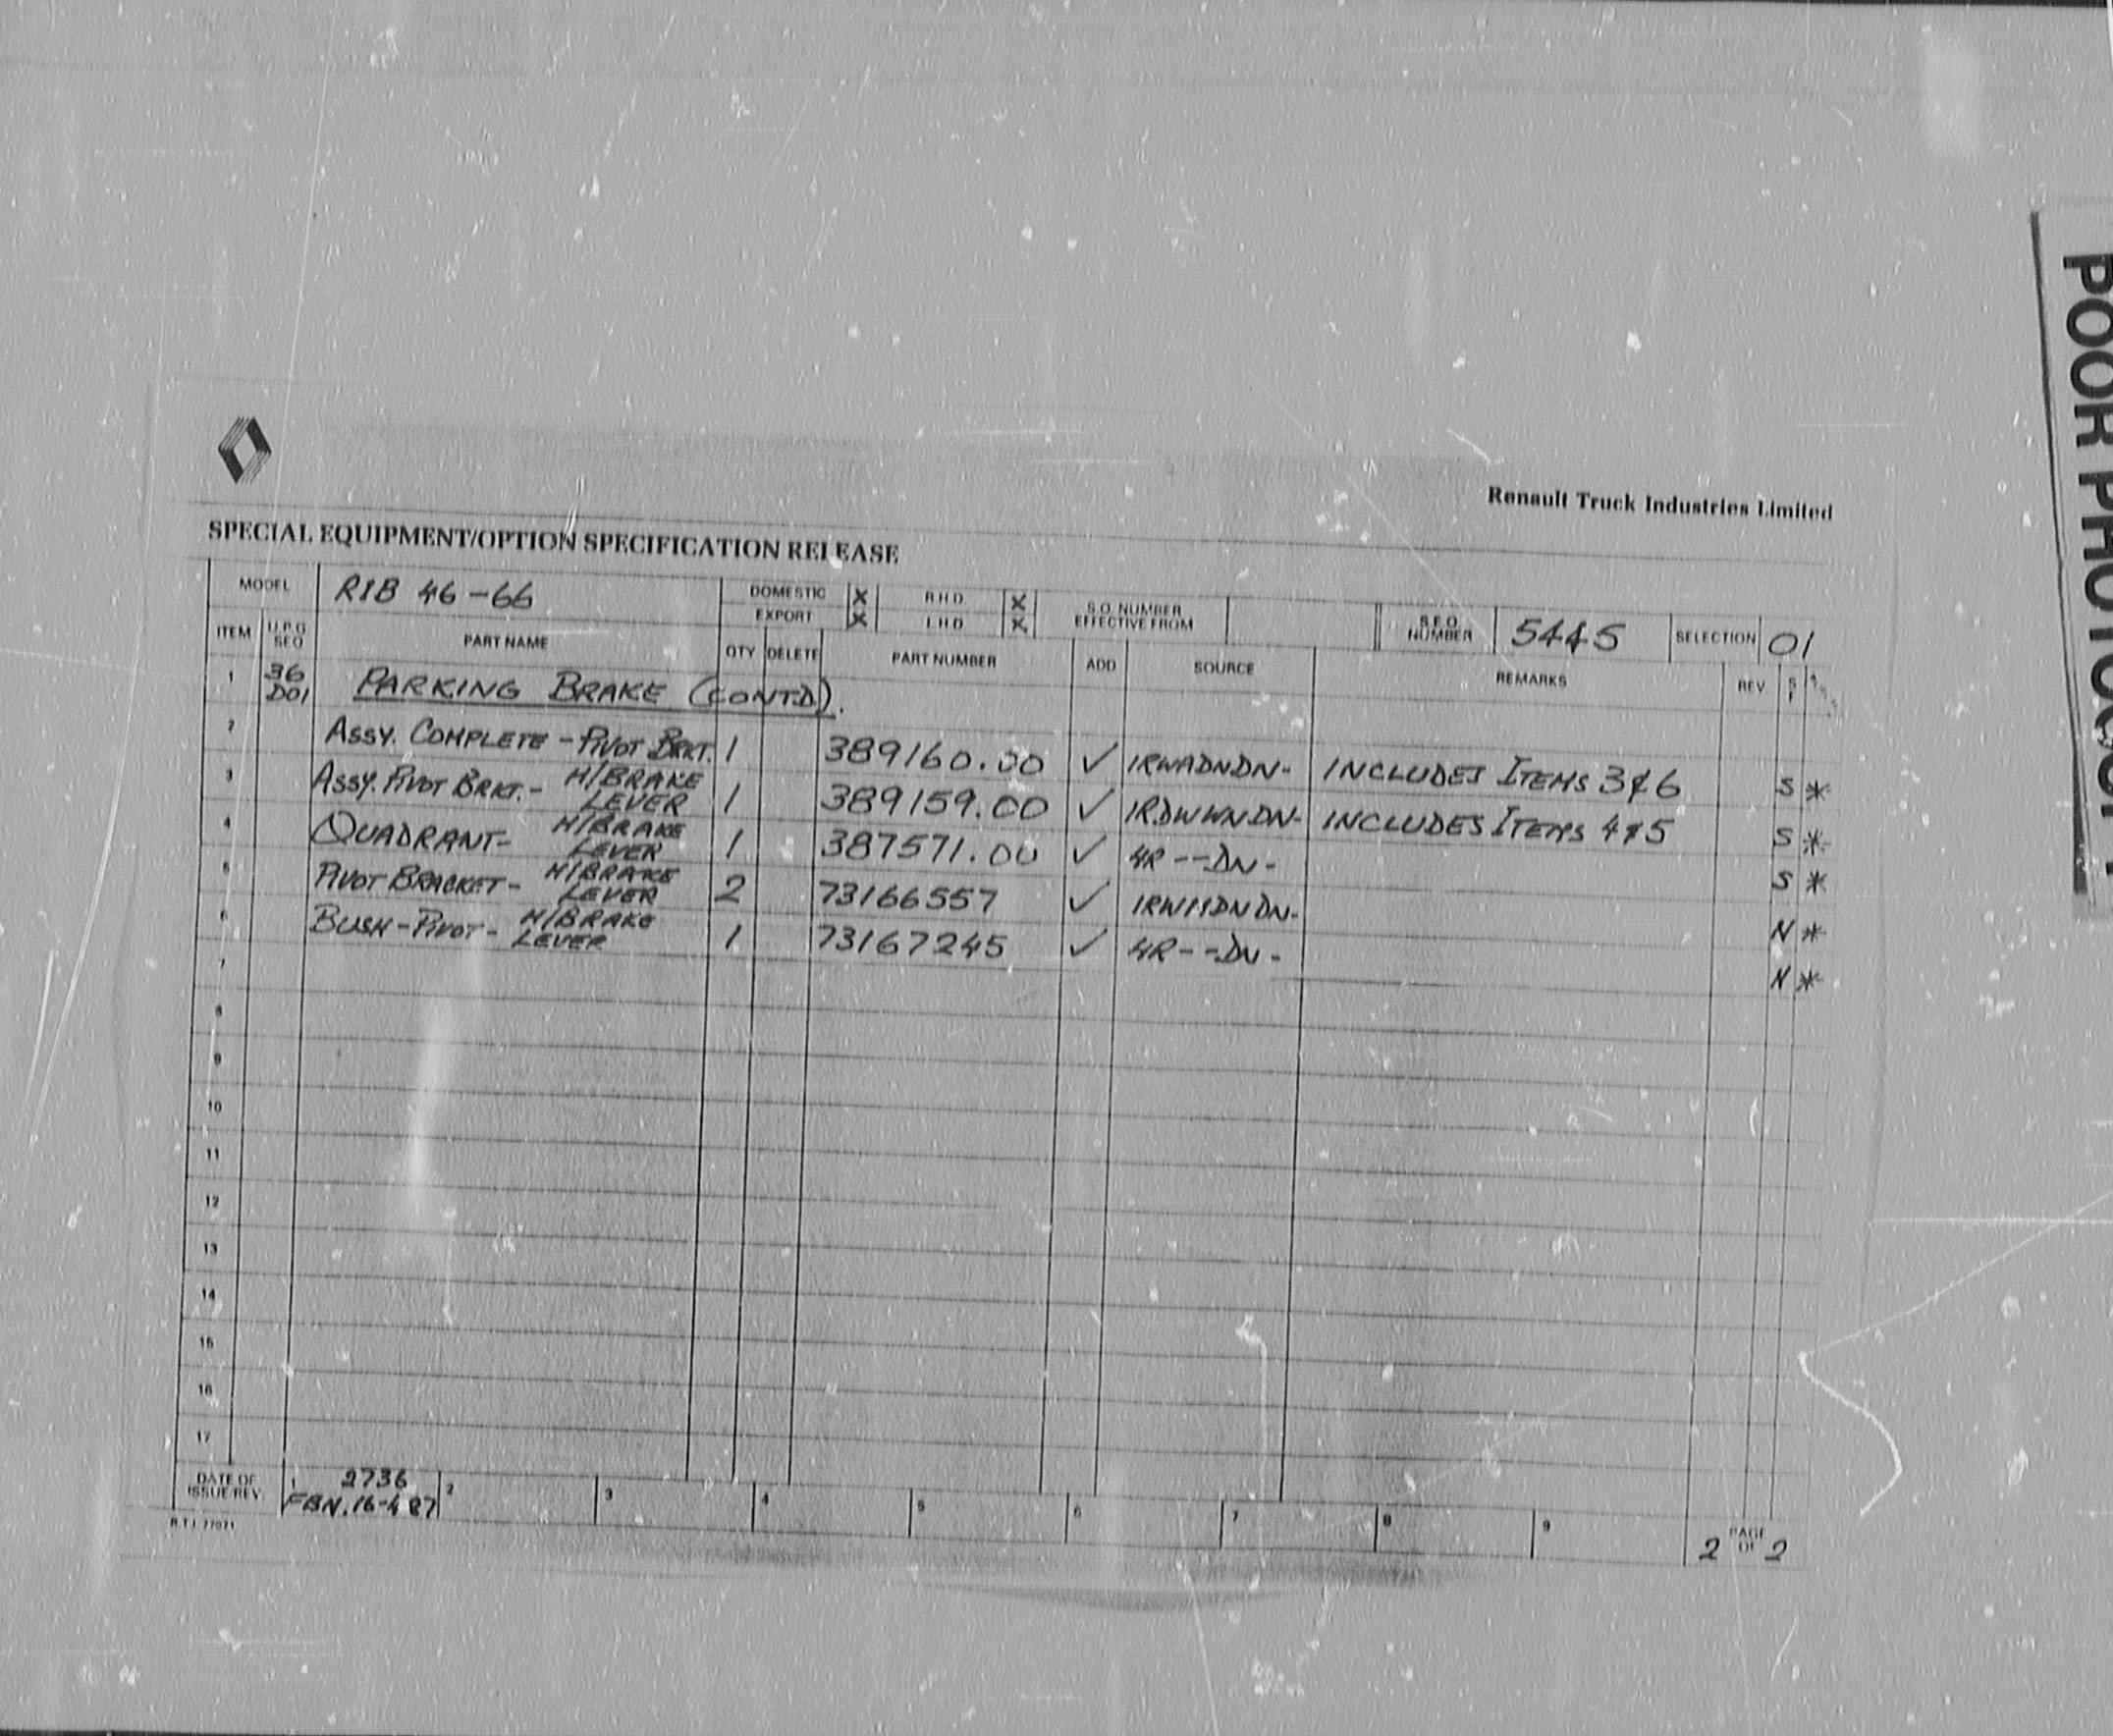 Renault Truck Industries Limited
SPECIAL EQUIPMENT/OPTION SPECIFICATION RELEASE
MODEL R1B 46-66 DOMESTIC X R.H.D. X S.O. NUMBER EFFECTIVE FROM S.E.O. NUMBER 5445 SELECTION 01
EXPORT X L.H.D. X
ITEM U.P.G SEQ PART NAME QTY DELETE PART NUMBER ADD SOURCE REMARKS REV S F
1 36 D01 PARKING BRAKE (CONTD).
2 ASSY. COMPLETE - PIVOT BRKT. 1 389160.00 ✓ 1RWADNDN- INCLUDES ITEMS 3 & 6 S *
3 ASSY. PIVOT BRKT. - H/BRAKE LEVER 1 389159.00 ✓ 1RDWWNDN- INCLUDES ITEMS 4 & 5 S *
4 QUADRANT- H/BRAKE LEVER 1 387571.00 ✓ 4R---DN- S *
5 PIVOT BRACKET- H/BRAKE LEVER 2 73166557 ✓ N *
6 BUSH-PIVOT- H/BRAKE LEVER 1 73167245 ✓ 4R---DN- N *
7
8
9
10
11
12
13
14
15
16
17
DATE OF ISSUE/REV. 1 2736 2 3 4 5 6 7 8 9 2 PAGE OF 2
FBN. 16-4 87
R.T.I. 77071
POOR PHOTOCOPY